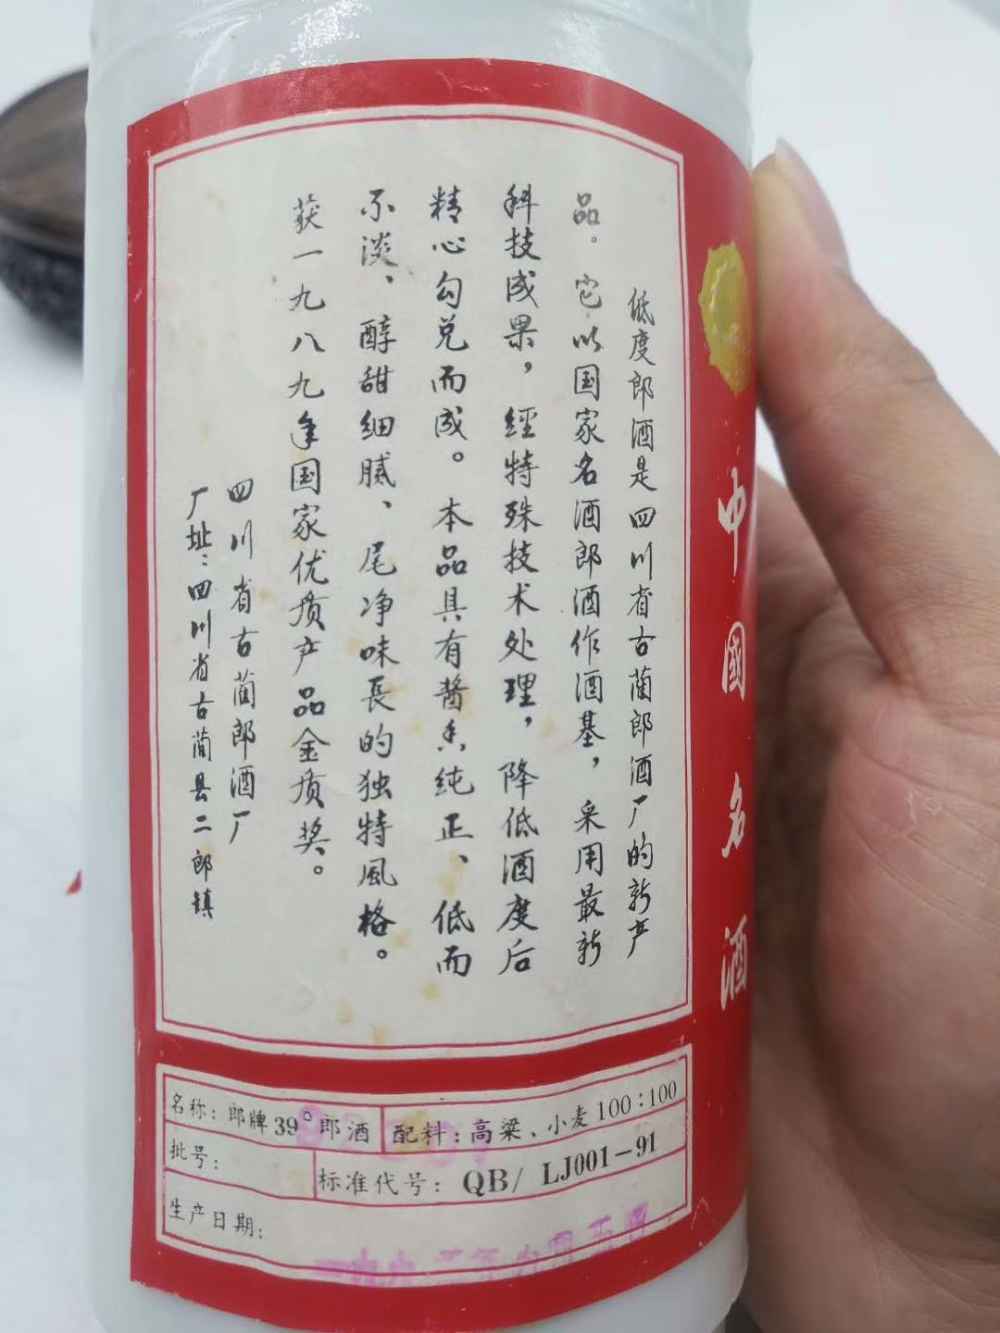 中國名酒
低度郎酒是四川省古蔺郎酒厂的新产
品。它以国家名酒郎酒作酒基，采用最新
科技成果，經特殊技术处理，降低酒度后
精心勾兑而成。本品具有酱香纯正、低而
不淡、醇甜细腻、尾净味長的独特風格。
获一九八九年国家优质产品金质奖。
四川省古蔺郎酒厂
厂址：四川省古蔺县二郎镇
名称：郎牌39°郎酒 配料：高粱、小麦100：100
批号： 标准代号：QB/ LJ001-91
生产日期：